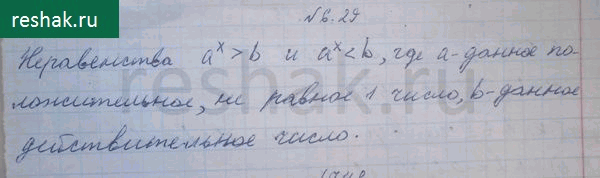 reshak.ru
№6.29
Неравенства aˣ > b и aˣ < b, где a-данное по-
ложительное, не равное 1 число, b-данное
действительное число.